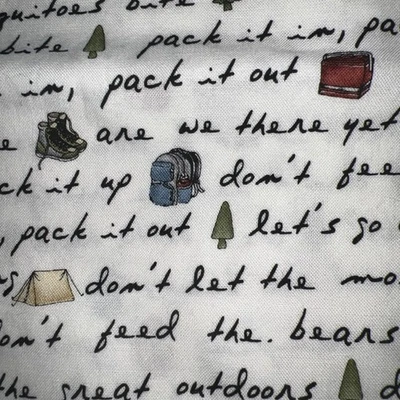 quitoes bite
bite pack it in, pa
in, pack it out
e are we there yet
ck it up don't fee
, pack it out let's go
don't let the mo
on't feed the. bears
the great outdoors d